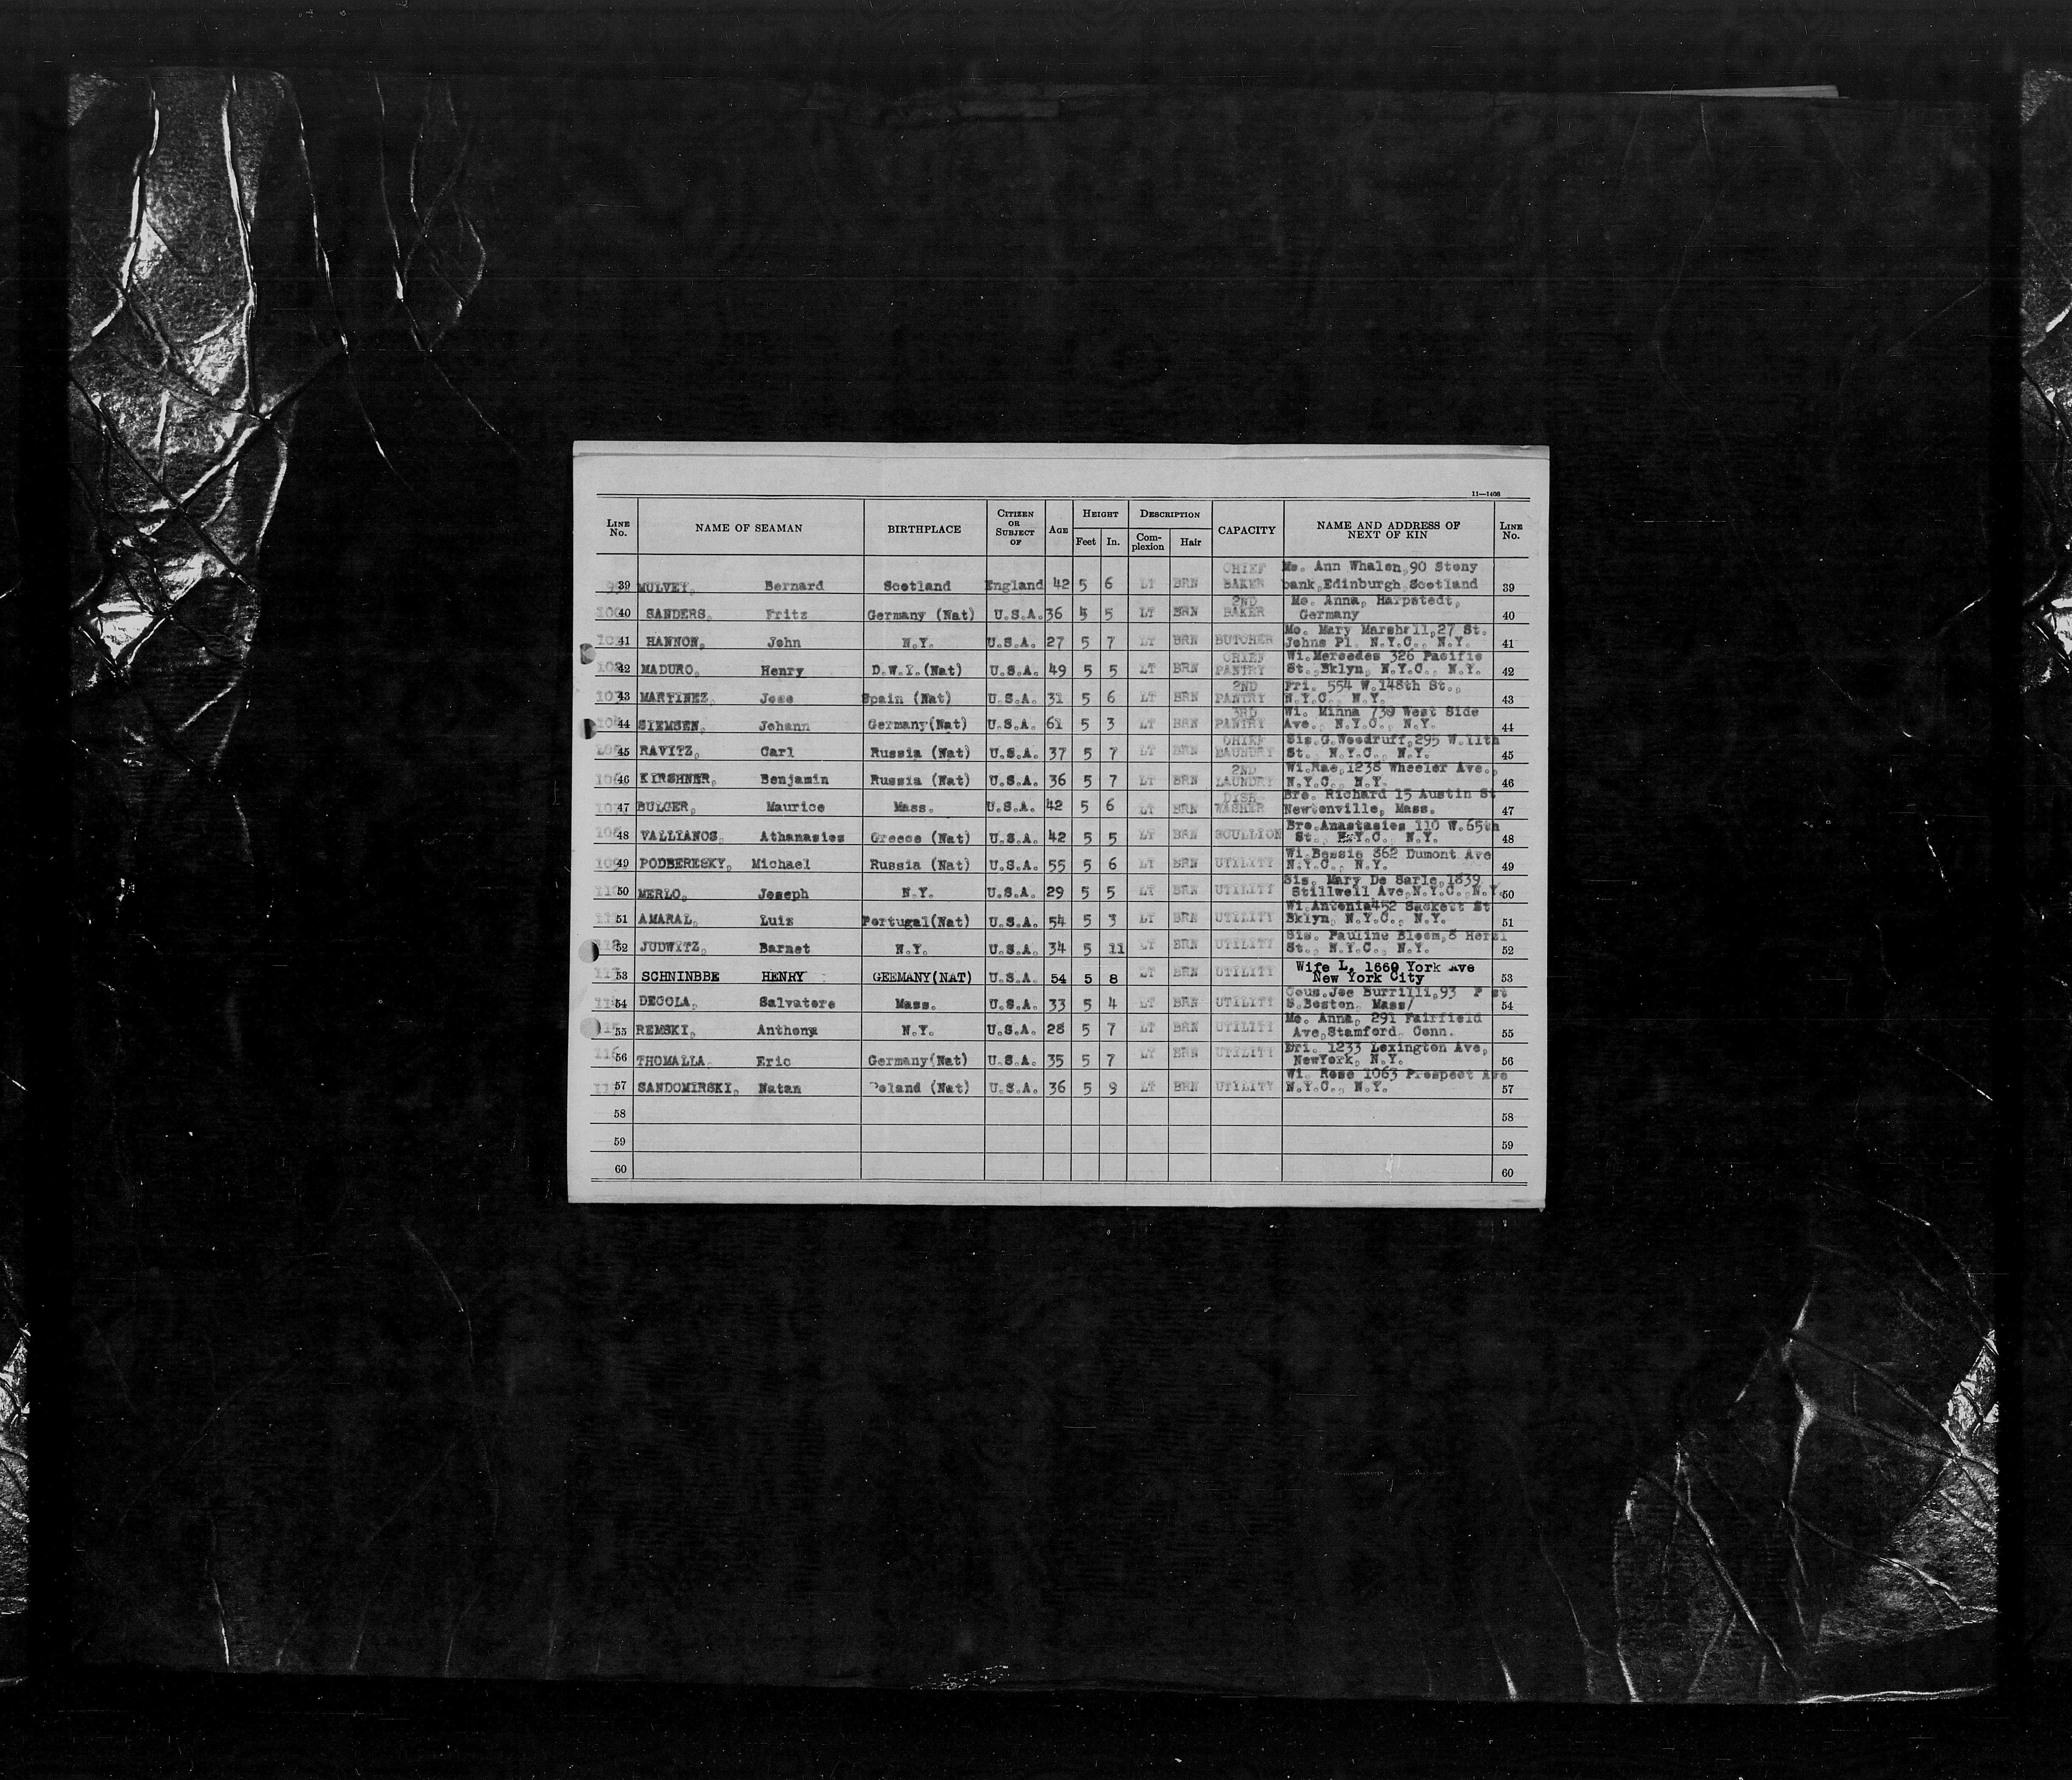 11—1406
LINE No. NAME OF SEAMAN BIRTHPLACE CITIZEN OR SUBJECT OF AGE HEIGHT Feet In. DESCRIPTION Com-plexion Hair CAPACITY NAME AND ADDRESS OF NEXT OF KIN LINE No.
39 MULVEY, Bernard Scotland England 42 5 6 LT BRN CHIEF BAKER Mo. Ann Whalen, 90 Stony bank, Edinburgh Scotland 39
40 SANDERS, Fritz Germany (Nat) U.S.A. 36 5 5 LT BRN 2ND BAKER Mo. Anna, Harpstedt, Germany 40
41 HANNON, John N.Y. U.S.A. 27 5 7 LT BRN BUTCHER Mo. Mary Marshall, 27 St. Johns Pl. N.Y.C., N.Y. 41
42 MADURO, Henry D.W.I.(Nat) U.S.A. 49 5 5 LT BRN CHIEF PANTRY Wi. Mercedes 326 Pacific St., Bklyn, N.Y.C., N.Y. 42
43 MARTINEZ, Jose Spain (Nat) U.S.A. 31 5 6 LT BRN 2ND PANTRY Fri. 554 W. 148th St., N.Y.C., N.Y. 43
44 SIEMSEN, Johann Germany(Nat) U.S.A. 61 5 3 LT BRN 3RD PANTRY Wi. Minna 739 West Side Ave., N.Y.C., N.Y. 44
45 RAVITZ, Carl Russia (Nat) U.S.A. 37 5 7 LT BRN CHIEF LAUNDRY Sis. G. Woodruff, 295 W. 11th St., N.Y.C., N.Y. 45
46 KIRSHNER, Benjamin Russia (Nat) U.S.A. 36 5 7 LT BRN 2ND LAUNDRY Wi. Rae, 1238 Wheeler Ave., N.Y.C., N.Y. 46
47 BULGER, Maurice Mass. U.S.A. 42 5 6 LT BRN DISH WASHER Bro. Richard 15 Austin St Newtonville, Mass. 47
48 VALLIANOS, Athanasios Greece (Nat) U.S.A. 42 5 5 LT BRN SCULLION Bro. Anastasios 110 W. 65th St., N.Y.C., N.Y. 48
49 PODBERESKY, Michael Russia (Nat) U.S.A. 55 5 6 LT BRN UTILITY Wi. Bessie 362 Dumont Ave N.Y.C., N.Y. 49
50 MERLO, Joseph N.Y. U.S.A. 29 5 5 LT BRN UTILITY Sis. Mary De Sarlo, 1839 Stillwell Ave, N.Y.C., N.Y. 50
51 AMARAL, Luiz Portugal(Nat) U.S.A. 54 5 3 LT BRN UTILITY Wi. Antonia 452 Sackett St Bklyn, N.Y.C., N.Y. 51
52 JUDWITZ, Barnet N.Y. U.S.A. 34 5 11 LT BRN UTILITY Sis. Pauline Bloom, 8 Herzl St., N.Y.C., N.Y. 52
53 SCHNINBBE HENRY GEEMANY(NAT) U.S.A. 54 5 8 LT BRN UTILITY Wife L. 1660 York Ave New York City 53
54 DECOLA, Salvatore Mass. U.S.A. 33 5 4 LT BRN UTILITY Cous. Joe Burrilli, 93 S. Boston, Mass/ 54
55 REMSKI, Anthony N.Y. U.S.A. 28 5 7 LT BRN UTILITY Mo. Anna, 291 Fairfield Ave, Stamford, Conn. 55
56 THOMALLA, Eric Germany(Nat) U.S.A. 35 5 7 LT BRN UTILITY Fri. 1233 Lexington Ave, NewYork, N.Y. 56
57 SANDOMIRSKI, Natan Poland (Nat) U.S.A. 36 5 9 LT BRN UTILITY Wi. Rose 1063 Prospect Ave N.Y.C., N.Y. 57
58 58
59 59
60 60